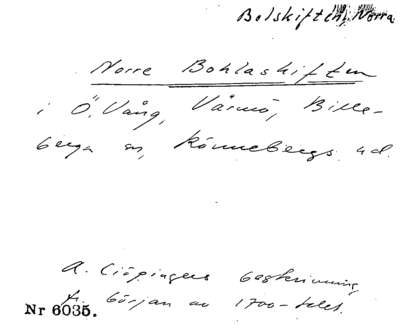 Bolskiften, Norra
Norre Bohlaskiften
i Ö. Vång, Värmö, Bille-
berga sn, Rönnebergs hd.
A. Ciöpingers beskrivning
fr. början av 1700-talet.
Nr 6035.